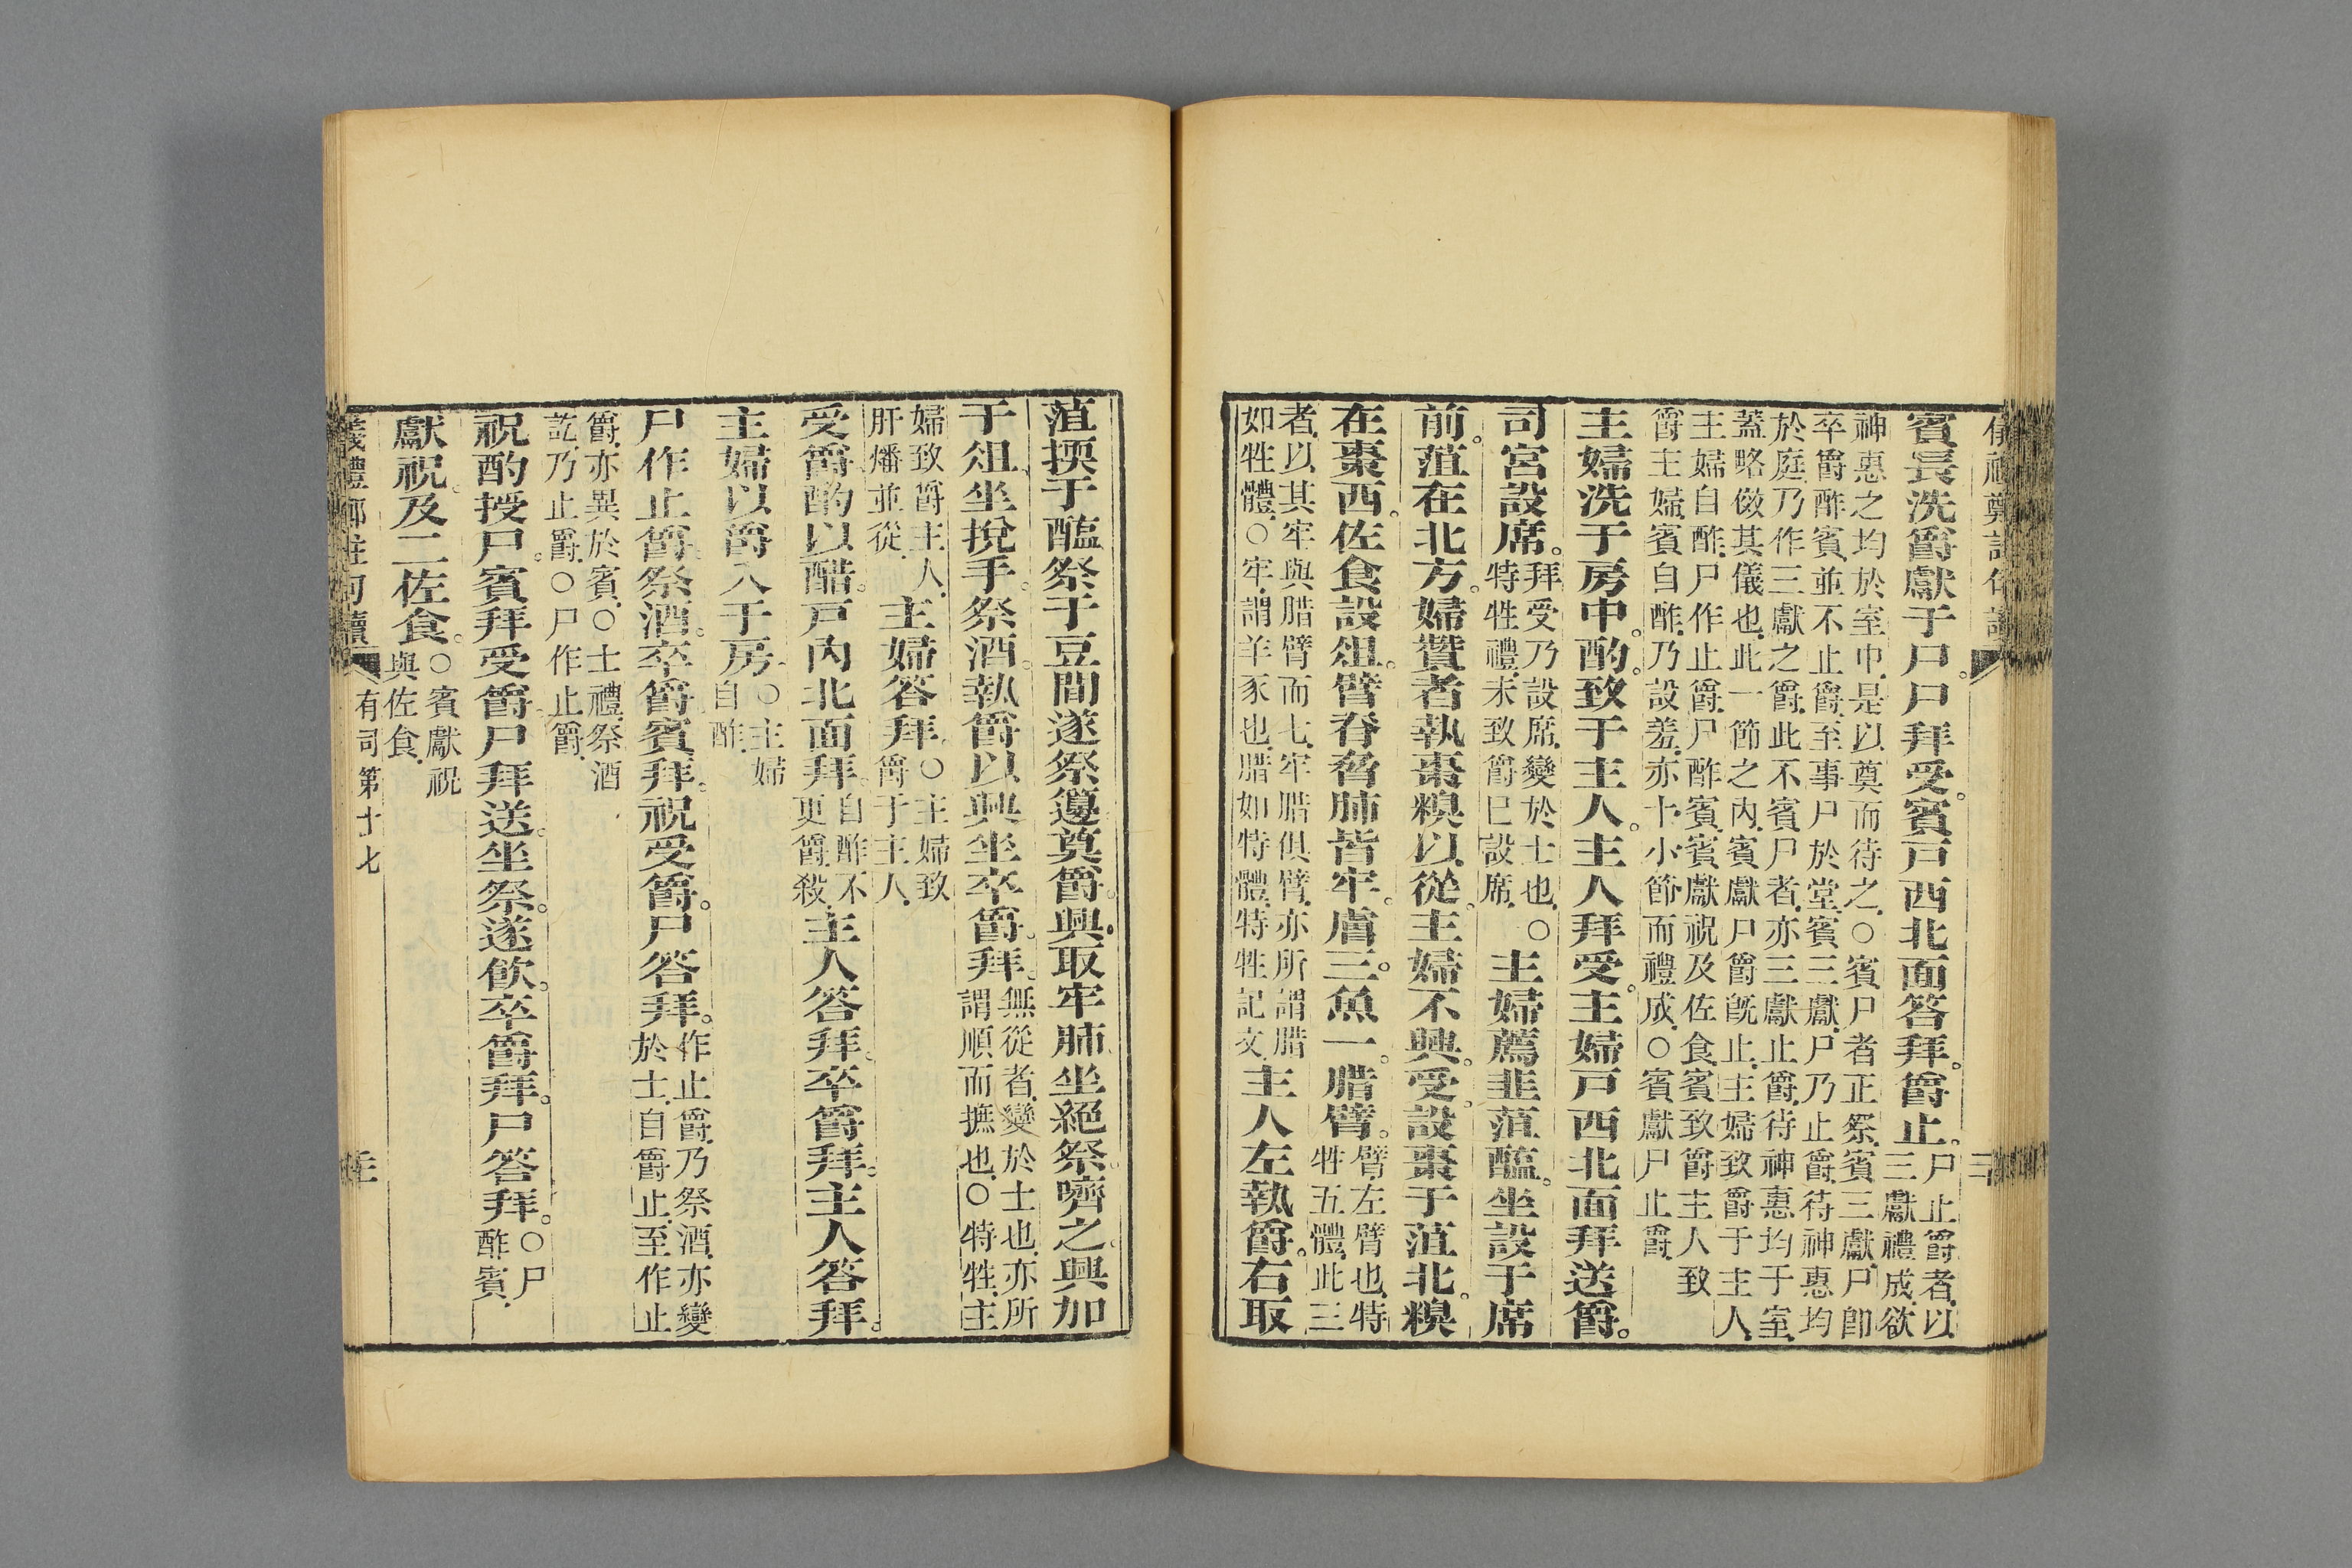 儀禮鄭註句讀
賓長洗爵獻于尸。尸拜受。賓戶西北面答拜。爵止。尸止爵者以三獻禮成欲
神惠之均於室中是以奠而待之○賓尸者正祭賓三獻尸卽
卒爵酢賓並不止爵至事尸於堂賓三獻尸乃止爵待神惠均
於庭乃作三獻之爵此不賓尸者亦三獻止爵待神惠均于室
蓋略倣其儀也此一節之內賓獻尸爵既止主婦致爵于主人
主婦自酢尸作止爵尸酢賓賓獻祝及佐食賓致爵主人致
爵主婦賓自酢乃設羞亦十小節而禮成○賓獻尸止爵
主婦洗于房中。酌。致于主人。主人拜受。主婦戶西北面拜送爵。
司宮設席。拜受乃設席變於士也特牲禮未致爵已設席○主婦薦韭菹醢。坐設于席
前。菹在北方。婦贊者執棗糗以從。主婦不興。受。設棗于菹北。糗
在棗西。佐食設俎。臂脊脅肺皆牢。膚三。魚一。腊臂。臂左臂也特牲五體此三
者以其牢與腊臂而七牢腊俱臂亦所謂腊
如牲體○牢謂羊豕也腊如特體特牲記文主人左執爵。右取
菹擩于醢祭于豆間遂祭籩奠爵。興取牢肺坐絕祭嚌之興加
于俎坐挩手。祭酒。執爵以興坐卒爵。拜。無從者變於士也亦所謂順而摭也○特牲主
婦致爵主人肝燔並從主婦答拜○主婦致爵于主人
受爵酌以醋。戶內北面拜。自酢不更爵殺主人答拜。卒爵拜。主人答拜。
主婦以爵入于房○主婦自酢
尸作止爵祭酒。卒爵賓拜。祝受爵。尸答拜。作止爵乃祭酒亦變於士自爵止至作止
爵亦異於賓○士禮祭酒
訖乃止爵○尸作止爵
祝酌授尸。賓拜受爵尸拜送。坐祭。遂飮。卒爵拜。尸答拜。○尸酢賓
獻祝。及二佐食。○賓獻祝與佐食
儀禮鄭註句讀
有司第十七